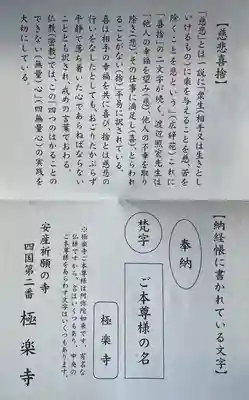 【慈悲喜捨】
「慈悲」とは一説に「衆生(相手又は生きとし
いけるもの)に楽を与えることを慈、苦を
除くことを悲という」(広辞苑)これに
「喜捨」の二文字が続く。渡辺照宏先生は
「他人の幸福を望み(慈)他人の不幸を取り
除き(悲)その仕事に満足し(喜)とらわれ
ることがない(捨)」平易に訳されている。
喜は相手の幸福を共に喜び、捨とは慈悲の
行いをなしたとしても、おごりたかぶらず
平静で落ち着いた心であらねばならない
こととも訳され、戒めの言葉でおわる。
仏教(密教)では、この「四つのはかることの
できない(無量)心」(四無量心)の実践を
大切にしている。
【納経帳に書かれている文字】
奉納
梵字
ご本尊様の名
極楽寺
※極楽寺ご本尊様は阿弥陀如来です。有名な
仏様ですから、名はいくつもあり、中央の
ご本尊様をあらわす文字はいくつもあります。
安産祈願の寺
四国第二番 極楽寺